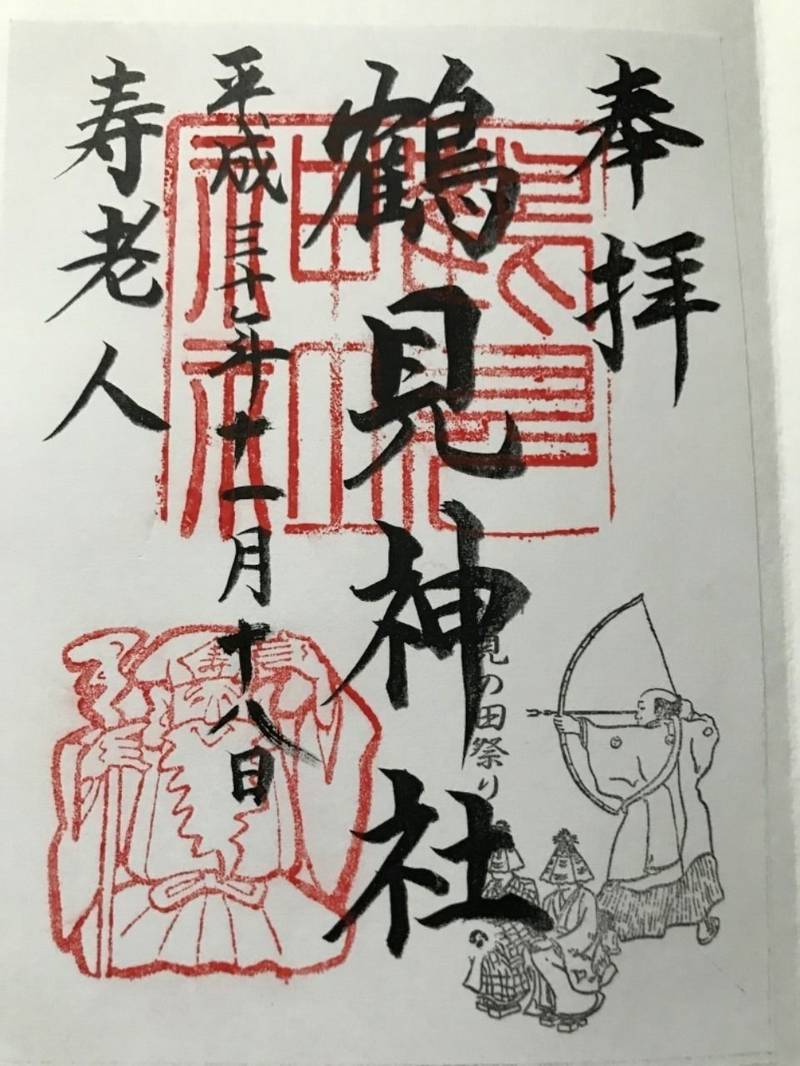 奉拝
鶴見神社
見の田祭り
平成三十年十一月十八日
寿老人
鶴見神社